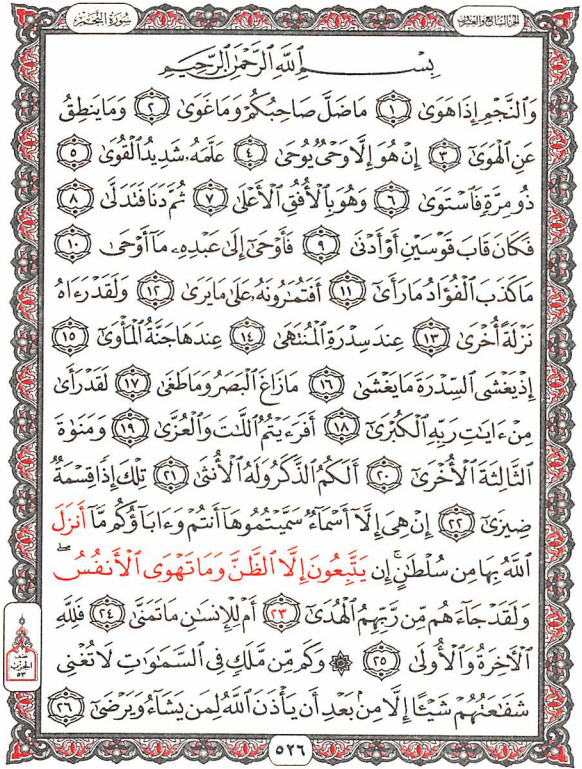 الجزء السابع والعشرون
سورة النجم
بِسْمِ اللَّهِ الرَّحْمَٰنِ الرَّحِيمِ
وَالنَّجْمِ إِذَا هَوَىٰ ١ مَا ضَلَّ صَاحِبُكُمْ وَمَا غَوَىٰ ٢ وَمَا يَنطِقُ
عَنِ الْهَوَىٰ ٣ إِنْ هُوَ إِلَّا وَحْيٌ يُوحَىٰ ٤ عَلَّمَهُ شَدِيدُ الْقُوَىٰ ٥
ذُو مِرَّةٍ فَاسْتَوَىٰ ٦ وَهُوَ بِالْأُفُقِ الْأَعْلَىٰ ٧ ثُمَّ دَنَا فَتَدَلَّىٰ ٨
فَكَانَ قَابَ قَوْسَيْنِ أَوْ أَدْنَىٰ ٩ فَأَوْحَىٰ إِلَىٰ عَبْدِهِ مَا أَوْحَىٰ ١٠
مَا كَذَبَ الْفُؤَادُ مَا رَأَىٰ ١١ أَفَتُمَارُونَهُ عَلَىٰ مَا يَرَىٰ ١٢ وَلَقَدْ رَءَاهُ
نَزْلَةً أُخْرَىٰ ١٣ عِندَ سِدْرَةِ الْمُنتَهَىٰ ١٤ عِندَهَا جَنَّةُ الْمَأْوَىٰ ١٥
إِذْ يَغْشَى السِّدْرَةَ مَا يَغْشَىٰ ١٦ مَا زَاغَ الْبَصَرُ وَمَا طَغَىٰ ١٧ لَقَدْ رَأَىٰ
مِنْ ءَايَاتِ رَبِّهِ الْكُبْرَىٰ ١٨ أَفَرَءَيْتُمُ اللَّاتَ وَالْعُزَّىٰ ١٩ وَمَنَوٰةَ
الثَّالِثَةَ الْأُخْرَىٰ ٢٠ أَلَكُمُ الذَّكَرُ وَلَهُ الْأُنثَىٰ ٢١ تِلْكَ إِذًا قِسْمَةٌ
ضِيزَىٰ ٢٢ إِنْ هِيَ إِلَّا أَسْمَاءٌ سَمَّيْتُمُوهَا أَنتُمْ وَءَابَاؤُكُم مَّا أَنزَلَ
اللَّهُ بِهَا مِن سُلْطَانٍ ۚ إِن يَتَّبِعُونَ إِلَّا الظَّنَّ وَمَا تَهْوَى الْأَنفُسُ ۖ
وَلَقَدْ جَاءَهُم مِّن رَّبِّهِمُ الْهُدَىٰ ٢٣ أَمْ لِلْإِنسَانِ مَا تَمَنَّىٰ ٢٤ فَلِلَّهِ
الْآخِرَةُ وَالْأُولَىٰ ٢٥ ۞ وَكَم مِّن مَّلَكٍ فِي السَّمَاوَاتِ لَا تُغْنِي
شَفَاعَتُهُمْ شَيْئًا إِلَّا مِن بَعْدِ أَن يَأْذَنَ اللَّهُ لِمَن يَشَاءُ وَيَرْضَىٰ ٢٦
نصف
الحزب
٥٣
٥٢٦